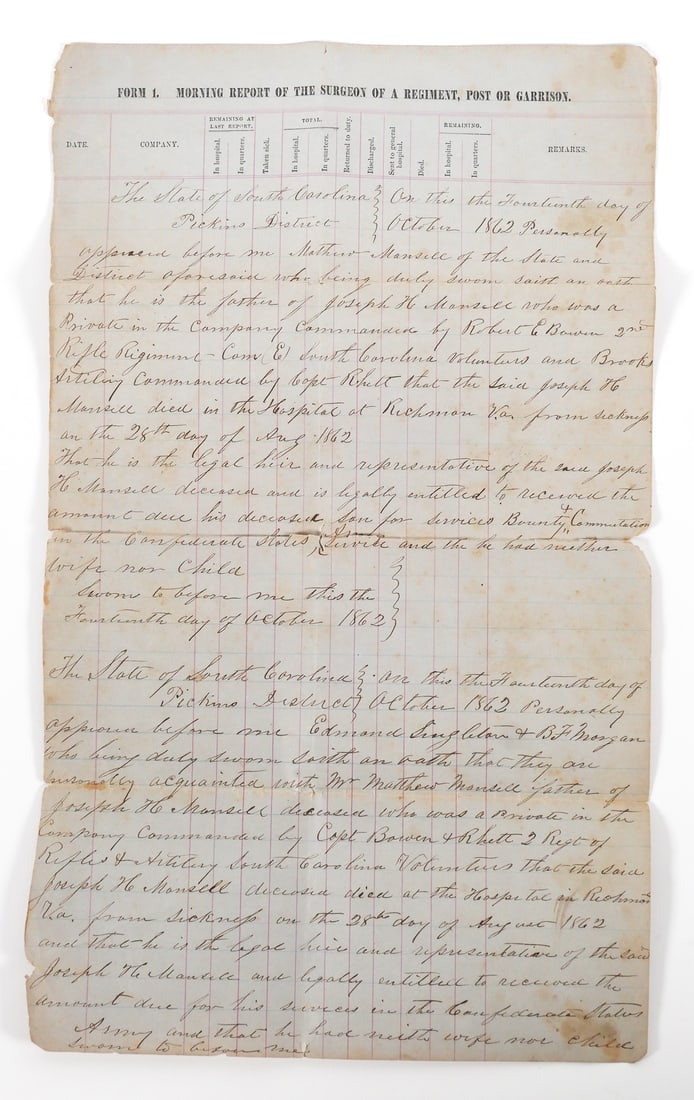 FORM 1. MORNING REPORT OF THE SURGEON OF A REGIMENT, POST OR GARRISON.
DATE. COMPANY. REMAINING AT LAST REPORT. In hospital. In quarters. Taken sick. TOTAL. In hospital. In quarters. Returned to duty. Discharged. Sent to general hospital. Died. REMAINING. In hospital. In quarters. REMARKS.
The State of South Carolina } On this the Fourteenth day of
Pickins District } October 1862 Personally
appieared before me Mathew Mansell of the State and
District aforesaid who being duly sworn saith an oath
that he is the father of Joseph H Mansell who was a
Private in the Company Commanded by Robert E Bowen 2nd
Rifle Rigiment - Com (E) South Carolina Volunters and Brooks
Artilery Commanded by Capt Rhett that the said Joseph H
Mansell died in the Hospital at Richmon Va. from sickness
on the 28th day of Aug 1862
That he is the legal heir and representative of the said Joseph
H Mansell deceased and is legally entitled to received the
amount due his deceased son for services Bounty & Commutation
in the Confederate States, Service and the he had neither
wife nor Child
Sworn to before me this the
Fourteenth day of October 1862 }
The State of South Carolina } On this the Fourteenth day of
Pickins District } October 1862 Personally
appiored before me Edmond Singleton & B F Morgan
who being duly sworn saith an oath that they are
personally acquainted with Mr Matthew Mansell father of
Joseph H Mansell deceased who was a private in the
Company Commanded by Capt Bowen & Rhett 2 Regt of
Rifles & Artilery South Carolina Volunters that the said
Joseph H Mansell deceased died at the Hospital in Richmon
Va. from sickness on the 28th day of August 1862
and that he is the legal hier and representative of the said
Joseph H Mansell and legally entitled to received the
amount due for his services in the Confederate States
Army and that he had neith wife nor child
Sworn to before me